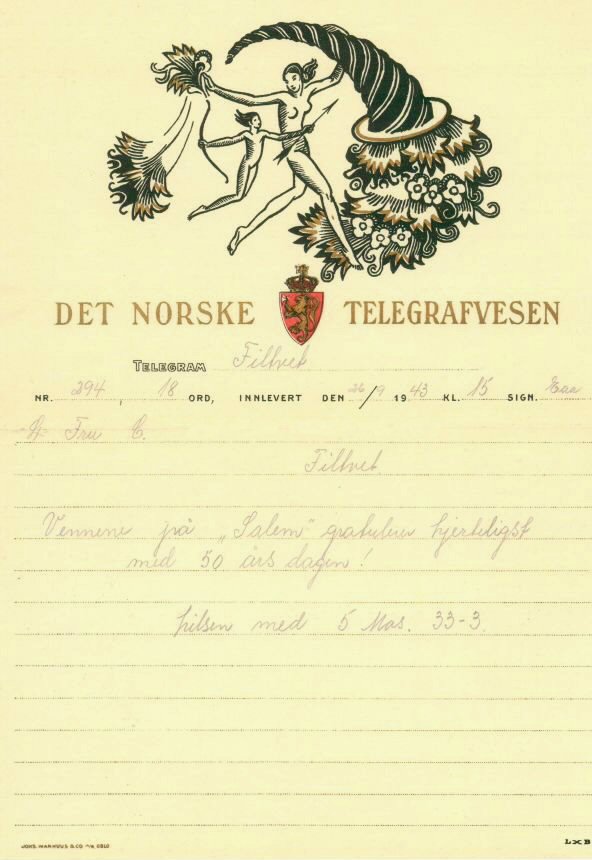 DET NORSKE TELEGRAFVESEN
TELEGRAM Filtvet
NR. 294, 18 ORD, INNLEVERT DEN 26/9 1943 KL. 15 SIGN. Eaa
Fru C.
Filtvet
Vennene på „Salem" gratulerer hjerteligst
med 50 års dagen!
hilsen med 5 Mos. 33-3.
JOHS. WANHUUS & CO OSLO
LXB